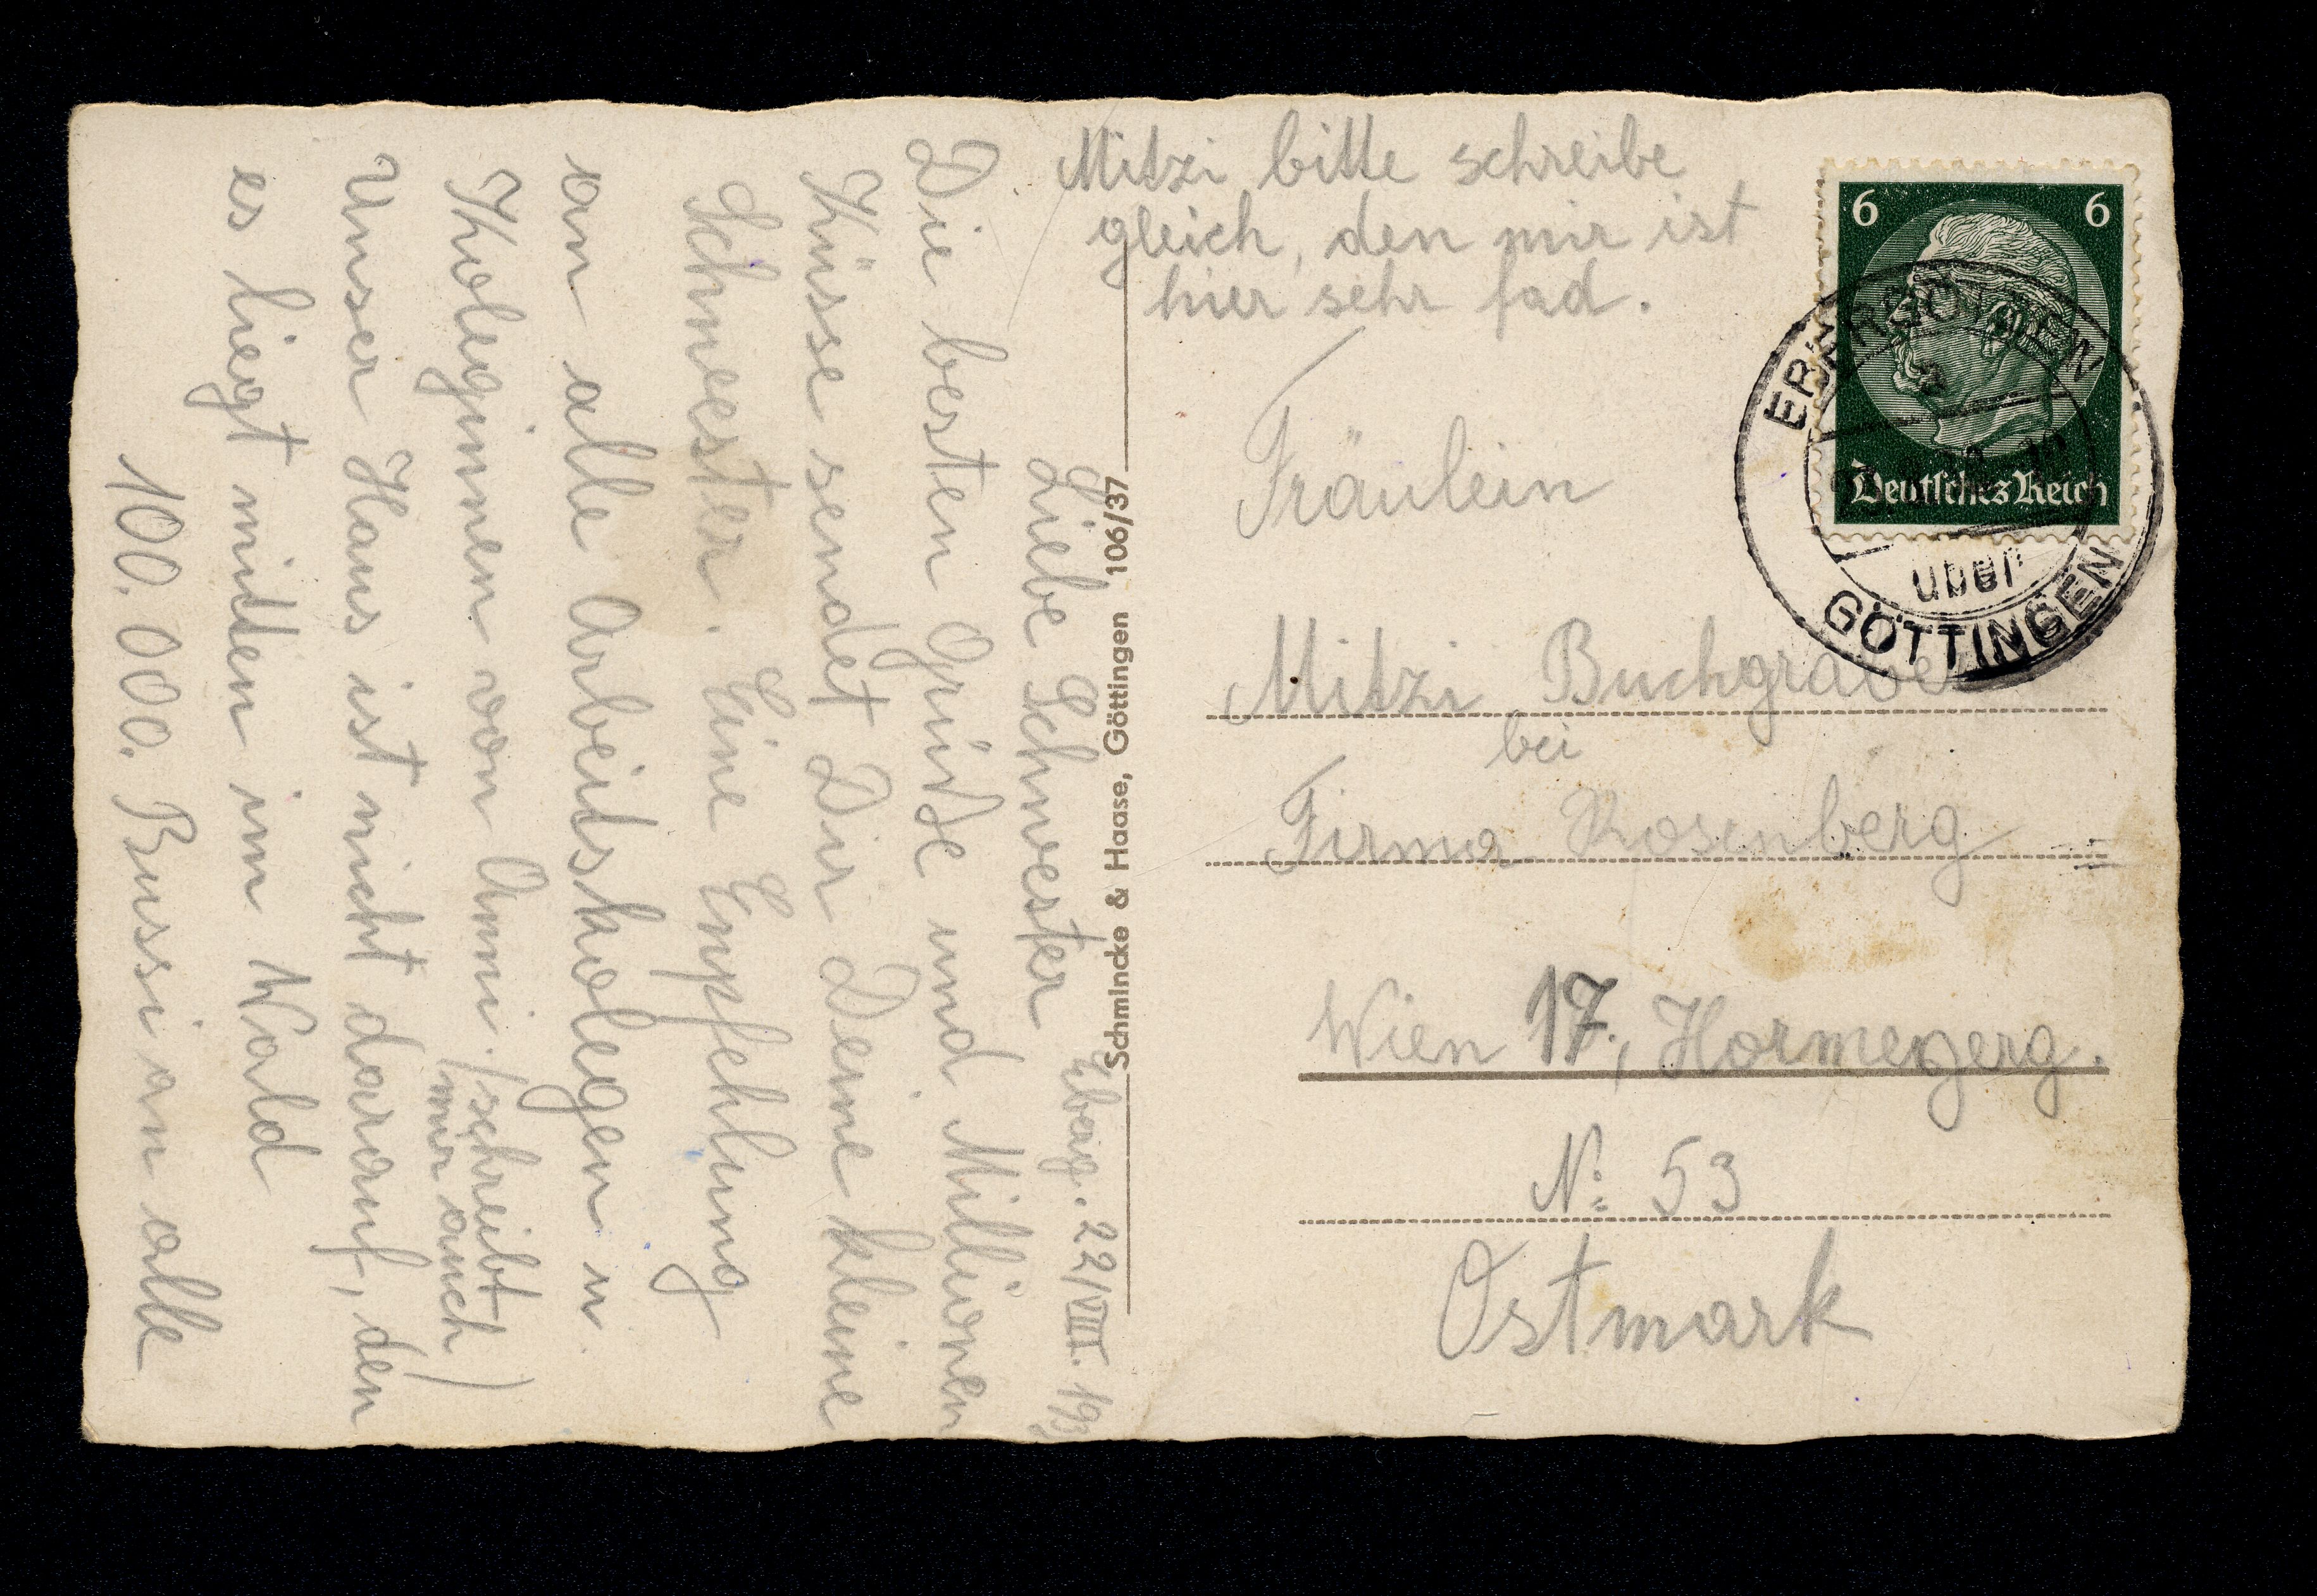 Mitzi bitte schreibe
gleich, den mir ist
hier sehr fad.
Eberg. 22/VIII. 193
Liebe Schwester
Die besten Grüße und Millionen
Küsse sendet Dir Deine kleine
Schwester. Eine Empfehlung
an alle Arbeitskolegen u.
Koleginnen von Anni. (schreibt
mir auch)
Unser Haus ist nicht darauf, den
es liegt mitten im Wald
100.000. Bussi an alle
Schmindcke & Haase, Göttingen 106/37
6 6
Deutsches Reich
über
GÖTTINGEN
Fräulein
Mitzi Buchgraber
bei
Firma Rosenberg
Wien 17., Hormeyerg.
N: 53
Ostmark